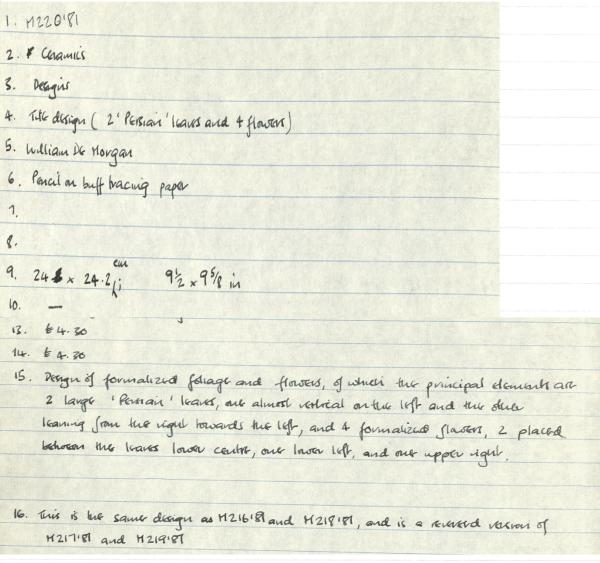 1. M220'81
2. Ceramics
3. Designs
4. Tile design ( 2 'Persian' leaves and 4 flowers)
5. William De Morgan
6. Pencil on buff tracing paper
7.
8.
9. 24 x 24.2 cm 9 1/2 x 9 5/8 in
10. —
13. E 4.30
14. E 4.30
15. Design of formalized foliage and flowers, of which the principal elements are
2 large 'Persian' leaves, one almost vertical on the left and the other
leaning from the right towards the left, and 4 formalized flowers, 2 placed
between the leaves lower centre, one lower left, and one upper right.
16. This is the same design as M216'81 and M218'81, and is a reversed version of
M217'81 and M219'81